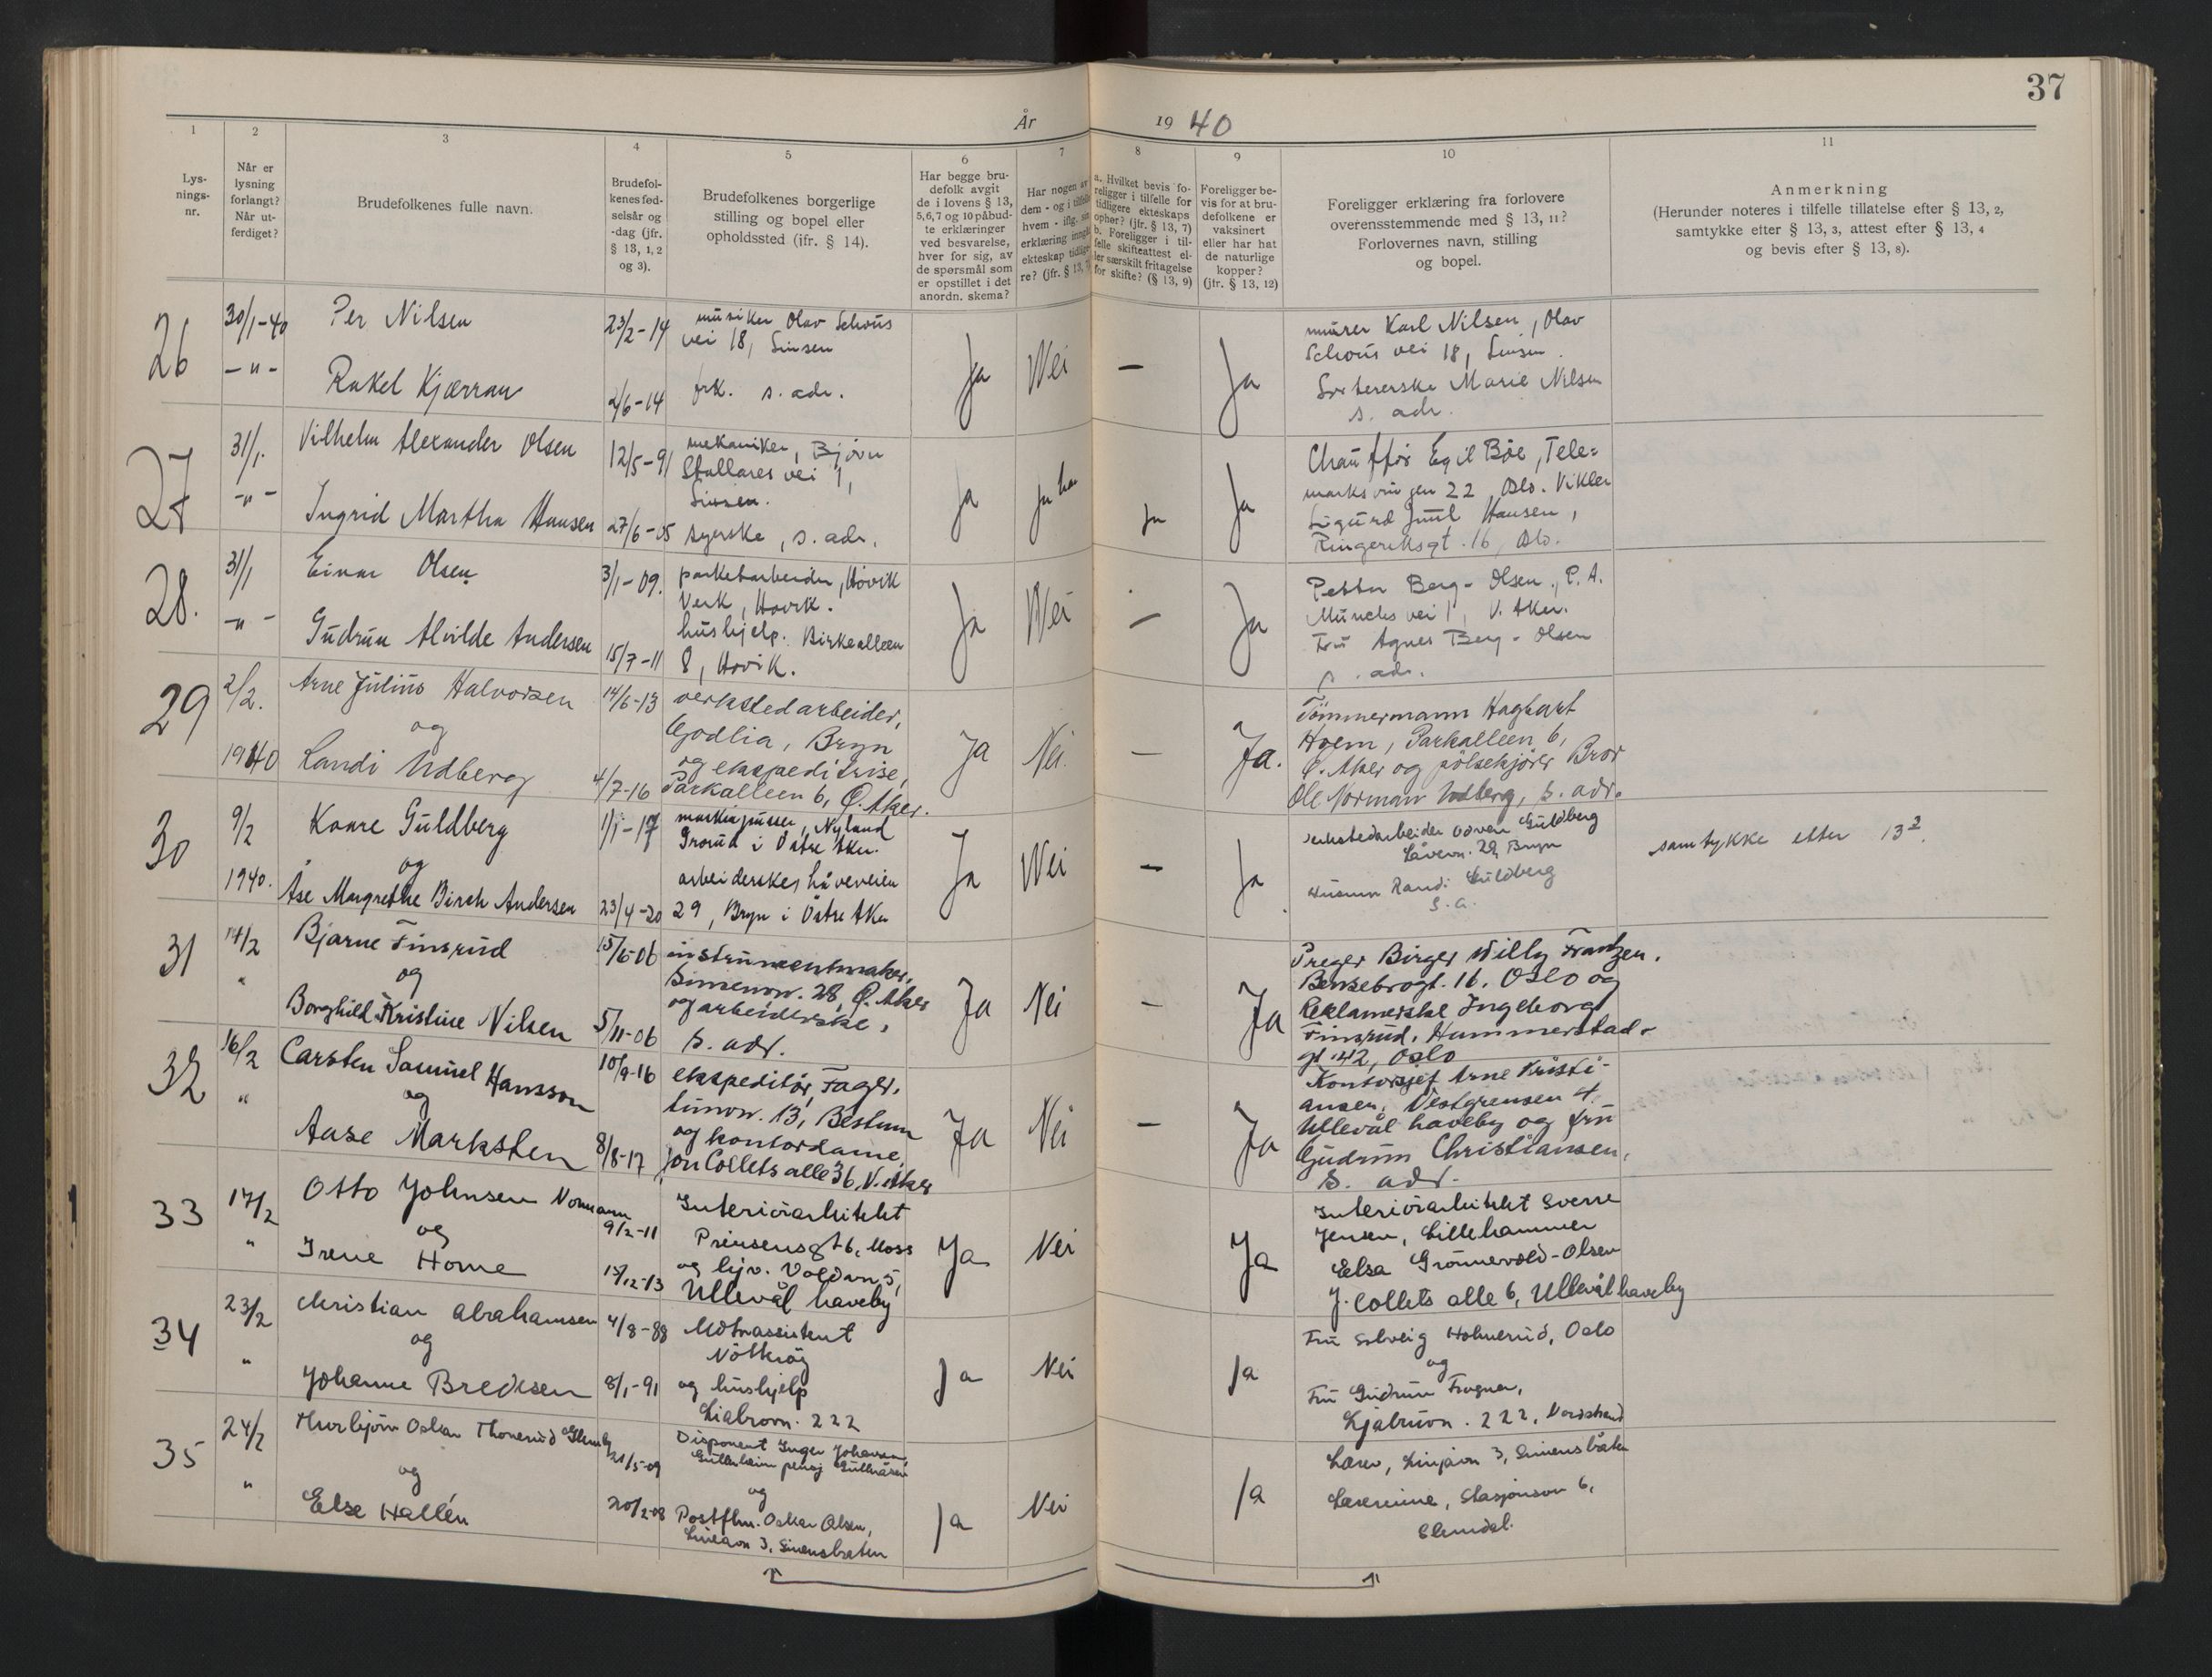 37
År 19 40
1
2
3
4
5
6
7
8
9
10
11
Lys-
nings-
nr.
Når er
lysning
forlangt?
Når ut-
ferdiget?
Brudefolkenes fulle navn.
Brudefol-
kenes fød-
selsår og
-dag (jfr.
§ 13, 1, 2
og 3).
Brudefolkenes borgerlige
stilling og bopel eller
opholdssted (jfr. § 14).
Har begge bru-
defolk avgit
de i lovens § 13,
5,6,7 og 10 påbud-
te erklæringer
ved besvarelse,
hver for sig, av
de spørsmål som
er opstillet i det
anordn. skema?
Har nogen av
dem - og i tilfelle
hvem - iflg. sin
erklæring inngått
ekteskap tidlige-
re? (jfr. § 13, 7)
a. Hvilket bevis fo-
religger i tilfelle for
tidligere ekteskaps
ophør? (jfr. § 13, 7)
b. Foreligger i til-
felle skifteattest el-
ler særskilt fritagelse
for skifte? (§ 13, 9)
Foreligger be-
vis for at bru-
defolkene er
vaksinert
eller har hat
de naturlige
kopper?
(jfr. § 13, 12)
Foreligger erklæring fra forlovere
overensstemmende med § 13, 11?
Forlovernes navn, stilling
og bopel.
Anmerkning
(Herunder noteres i tilfelle tillatelse efter § 13, 2,
samtykke efter § 13, 3, attest efter § 13, 4
og bevis efter § 13, 8).
26
30/1-40
-"-
Per Nilsen
Rakel Kjærran
23/2-14
2/6-14
musiker Olav Schous
vei 18, Sinsen
frk. s. adr.
Ja
Nei
-
Ja
murer Karl Nilsen, Olav
Schous vei 18, Sinsen.
Sortererske Marie Nilsen
s. adr.
27
31/1.
-"-
Vilhelm Alexander Olsen
Ingrid Martha Hansen
12/5-91
27/6-05
mekaniker, Bjørn
Stallares vei 1,
Sinsen.
syerske, s. adr.
Ja
Ja
Ja
Ja
Chauffør Egil Bøe, Tele=
marksvingen 22, Oslo. Vikler
Sigurd Juul Hansen,
Ringeriksgt. 16, Oslo.
28.
31/1
-"-
Einar Olsen
Gudrun Alvilde Andersen
3/1-09.
15/7-11
parketarbeider, Høvik
Verk, Høvik.
hushjelp. Birkealleen
8, Høvik.
Ja
Nei
-
Ja
Petter Berg-Olsen, P. A.
Munchs vei 1, V. Aker.
Fru Agnes Berg-Olsen
s. adr.
29
2/2.
1940
Arne Julius Halvorsen
og
Landi Udberg
14/6-13
4/7-16
verkstedarbeider,
Godlia, Bryn
og ekspeditrise,
Parkalleen 6, Ø. Aker.
Ja
Nei.
-
Ja.
Tömmermann Hagbart
Hoem, Parkalleen 6,
Ø. Aker og pölsekjörer Bror
Ole Norman Udberg, s. adr.
30
9/2
1940.
Kaare Guldberg
og
Åse Margrethe Birch Andersen
1/1-17
23/4-20
maskinpusser, Nyland
Grorud i Østre Aker.
arbeiderske, Håveveien
29, Bryn i Østre Aker
Ja
Nei
-
Ja
verkstedarbeider Odvar Guldberg
Håvevn. 29, Bryn
Husmor Randi Guldberg
s. a.
samtykke etter 13³.
31
14/2
"
Bjarne Finsrud
og
Borghild Kristine Nilsen
15/6-06
5/11-06
instrumentmaker,
Sinsenvn. 28, Ø. Aker
og arbeiderske,
s. adr.
Ja
Nei
-
Ja
Preger Birger Willy Frantzen.
Bentsebrogt. 16. Oslo og
Reklamerske Ingeborg
Finsrud, Hammerstad-
gt. 42, Oslo
32
16/2
"
Carsten Samuel Hansson
og
Aase Marksten
10/9-16
8/8-17
ekspeditör, Fager-
limvn. 13, Bestum
og kontordame
Jon Collets alle 36, V. Aker
Ja
Nei
-
Ja
Kontorsjef Arne Kristi-
ansen, Vestgrensen 4.
Ullevål haveby og fru
Gudrun Christiansen,
s. adr.
33
17/2
"
Otto Johnsen Normann
og
Irene Horne
9/2-11
15/12-13
Interiörarkitekt
Prinsensgt 6, Moss
og hjv. Voldvn 5,
Ullevål haveby
Ja
Nei
Ja
Interiörarkitekt Sverre
Jensen, Lillehammer
Elsa Grönnevold-Olsen
J. Collets alle 6, Ullevål haveby
34
23/2
"
Christian Abrahamsen
og
Johanne Bredesen
4/8-88
8/1-91
og hushjelp
Liabruvn. 222
Ja
Nei
Ja
Fru Solveig Holmerud, Oslo
og
Fru Gudrun Frogner,
Ljabruvn. 222, Nordstrand
35
24/2
"
Thorbjörn Oskar Thonerud
og
Else Hallén
21/5-09
20/2-08
Disponent Inger Johansen,
og
Postflm. Oskar Olsen,
Lineavn 3, Simensbråten
Ja
Nei
Ja
Lærer, Linjavn 3, Simensbråten
Lærerinne, Stasjonsvn 6,